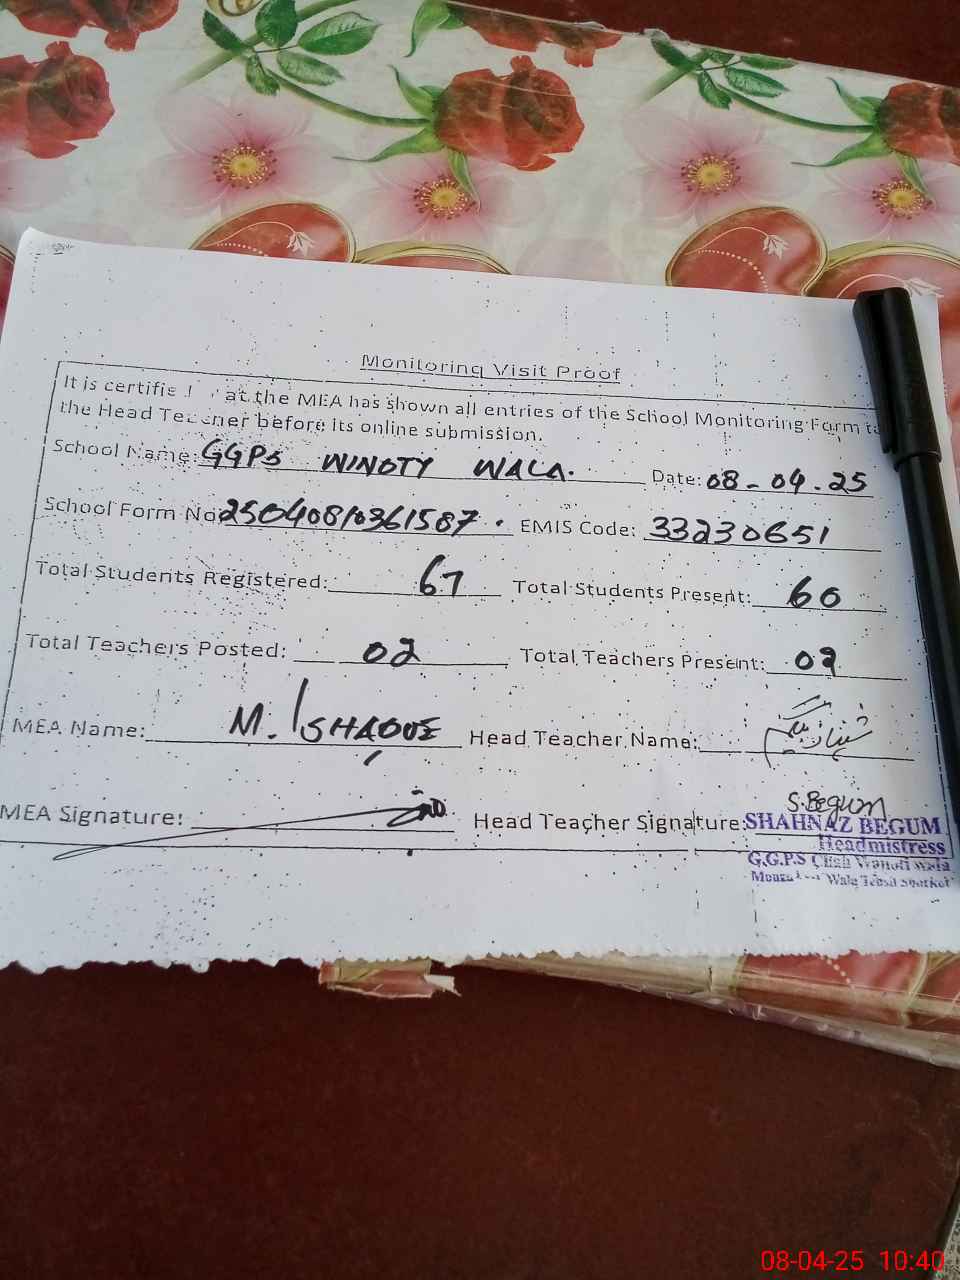 Monitoring Visit Proof
It is certifie at the MEA has shown all entries of the School Monitoring Form to
the Head Teacher before its online submission.
School Name: GGPS WINOTY WALA. Date: 08-04-25
School Form No 25040810361587. EMIS Code: 33230651
Total Students Registered: 67 Total Students Present: 60
Total Teachers Posted: 02 Total Teachers Present: 02
MEA Name: M. ISHAQUE Head Teacher Name: شہناز بیگم
MEA Signature: Head Teacher Signature: S.Begum
SHAHNAZ BEGUM
Headmistress
G.G.P.S Wanoti wala
Wala Tehsil Shorkot
08-04-25 10:40